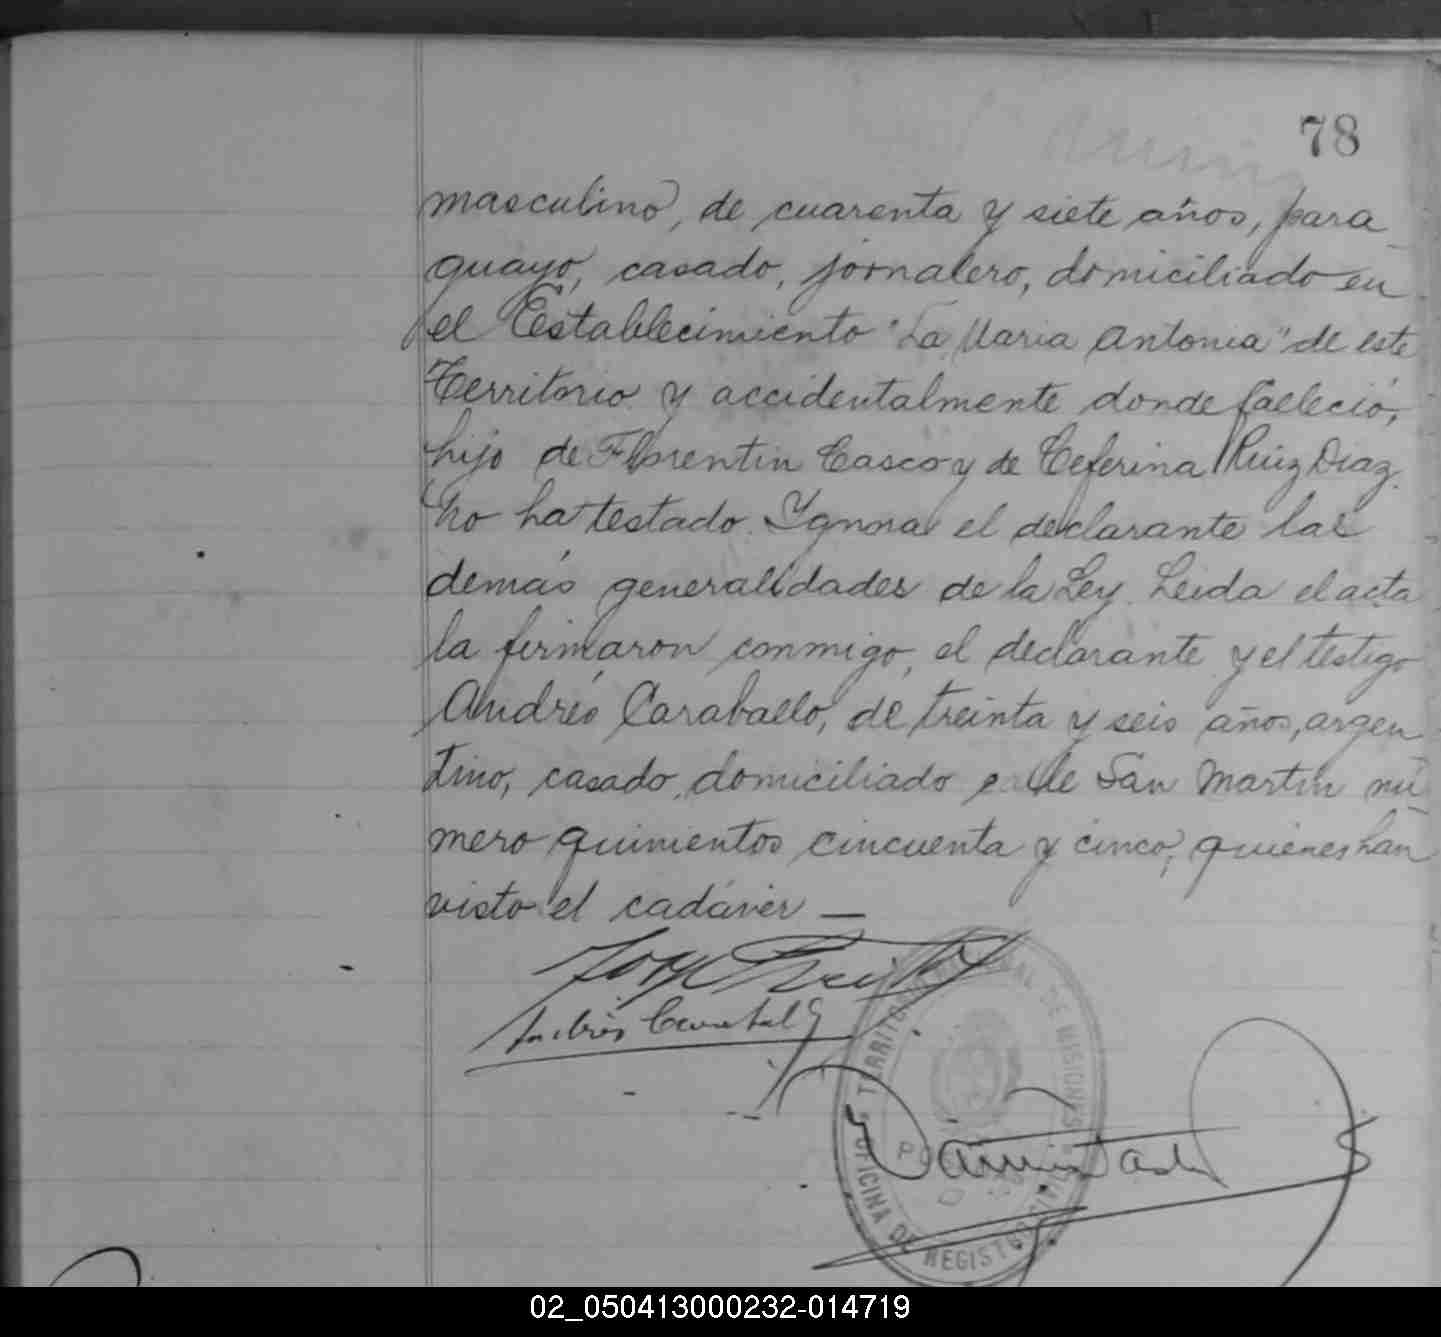 78
masculino, de cuarenta y siete años, para
guayo, casado, jornalero, domiciliado en
el Establecimiento "La Maria Antonia" de este
Territorio y accidentalmente donde falleció,
hijo de Florentin Casco y de Ceferina Ruiz Diaz.
No ha testado. Ygnora el declarante las
demás generalidades de la Ley. Leida el acta
la firmaron conmigo, el declarante y el testigo
Andrés Caraballo, de treinta y seis años, argen
tino, casado, domiciliado calle San Martin nú
mero quinientos cincuenta y cinco, quienes han
visto el cadáver —
Andrés Caraballo
TERRITORIO NACIONAL DE MISIONES
OFICINA DE REGISTRO CIVIL
02_050413000232-014719